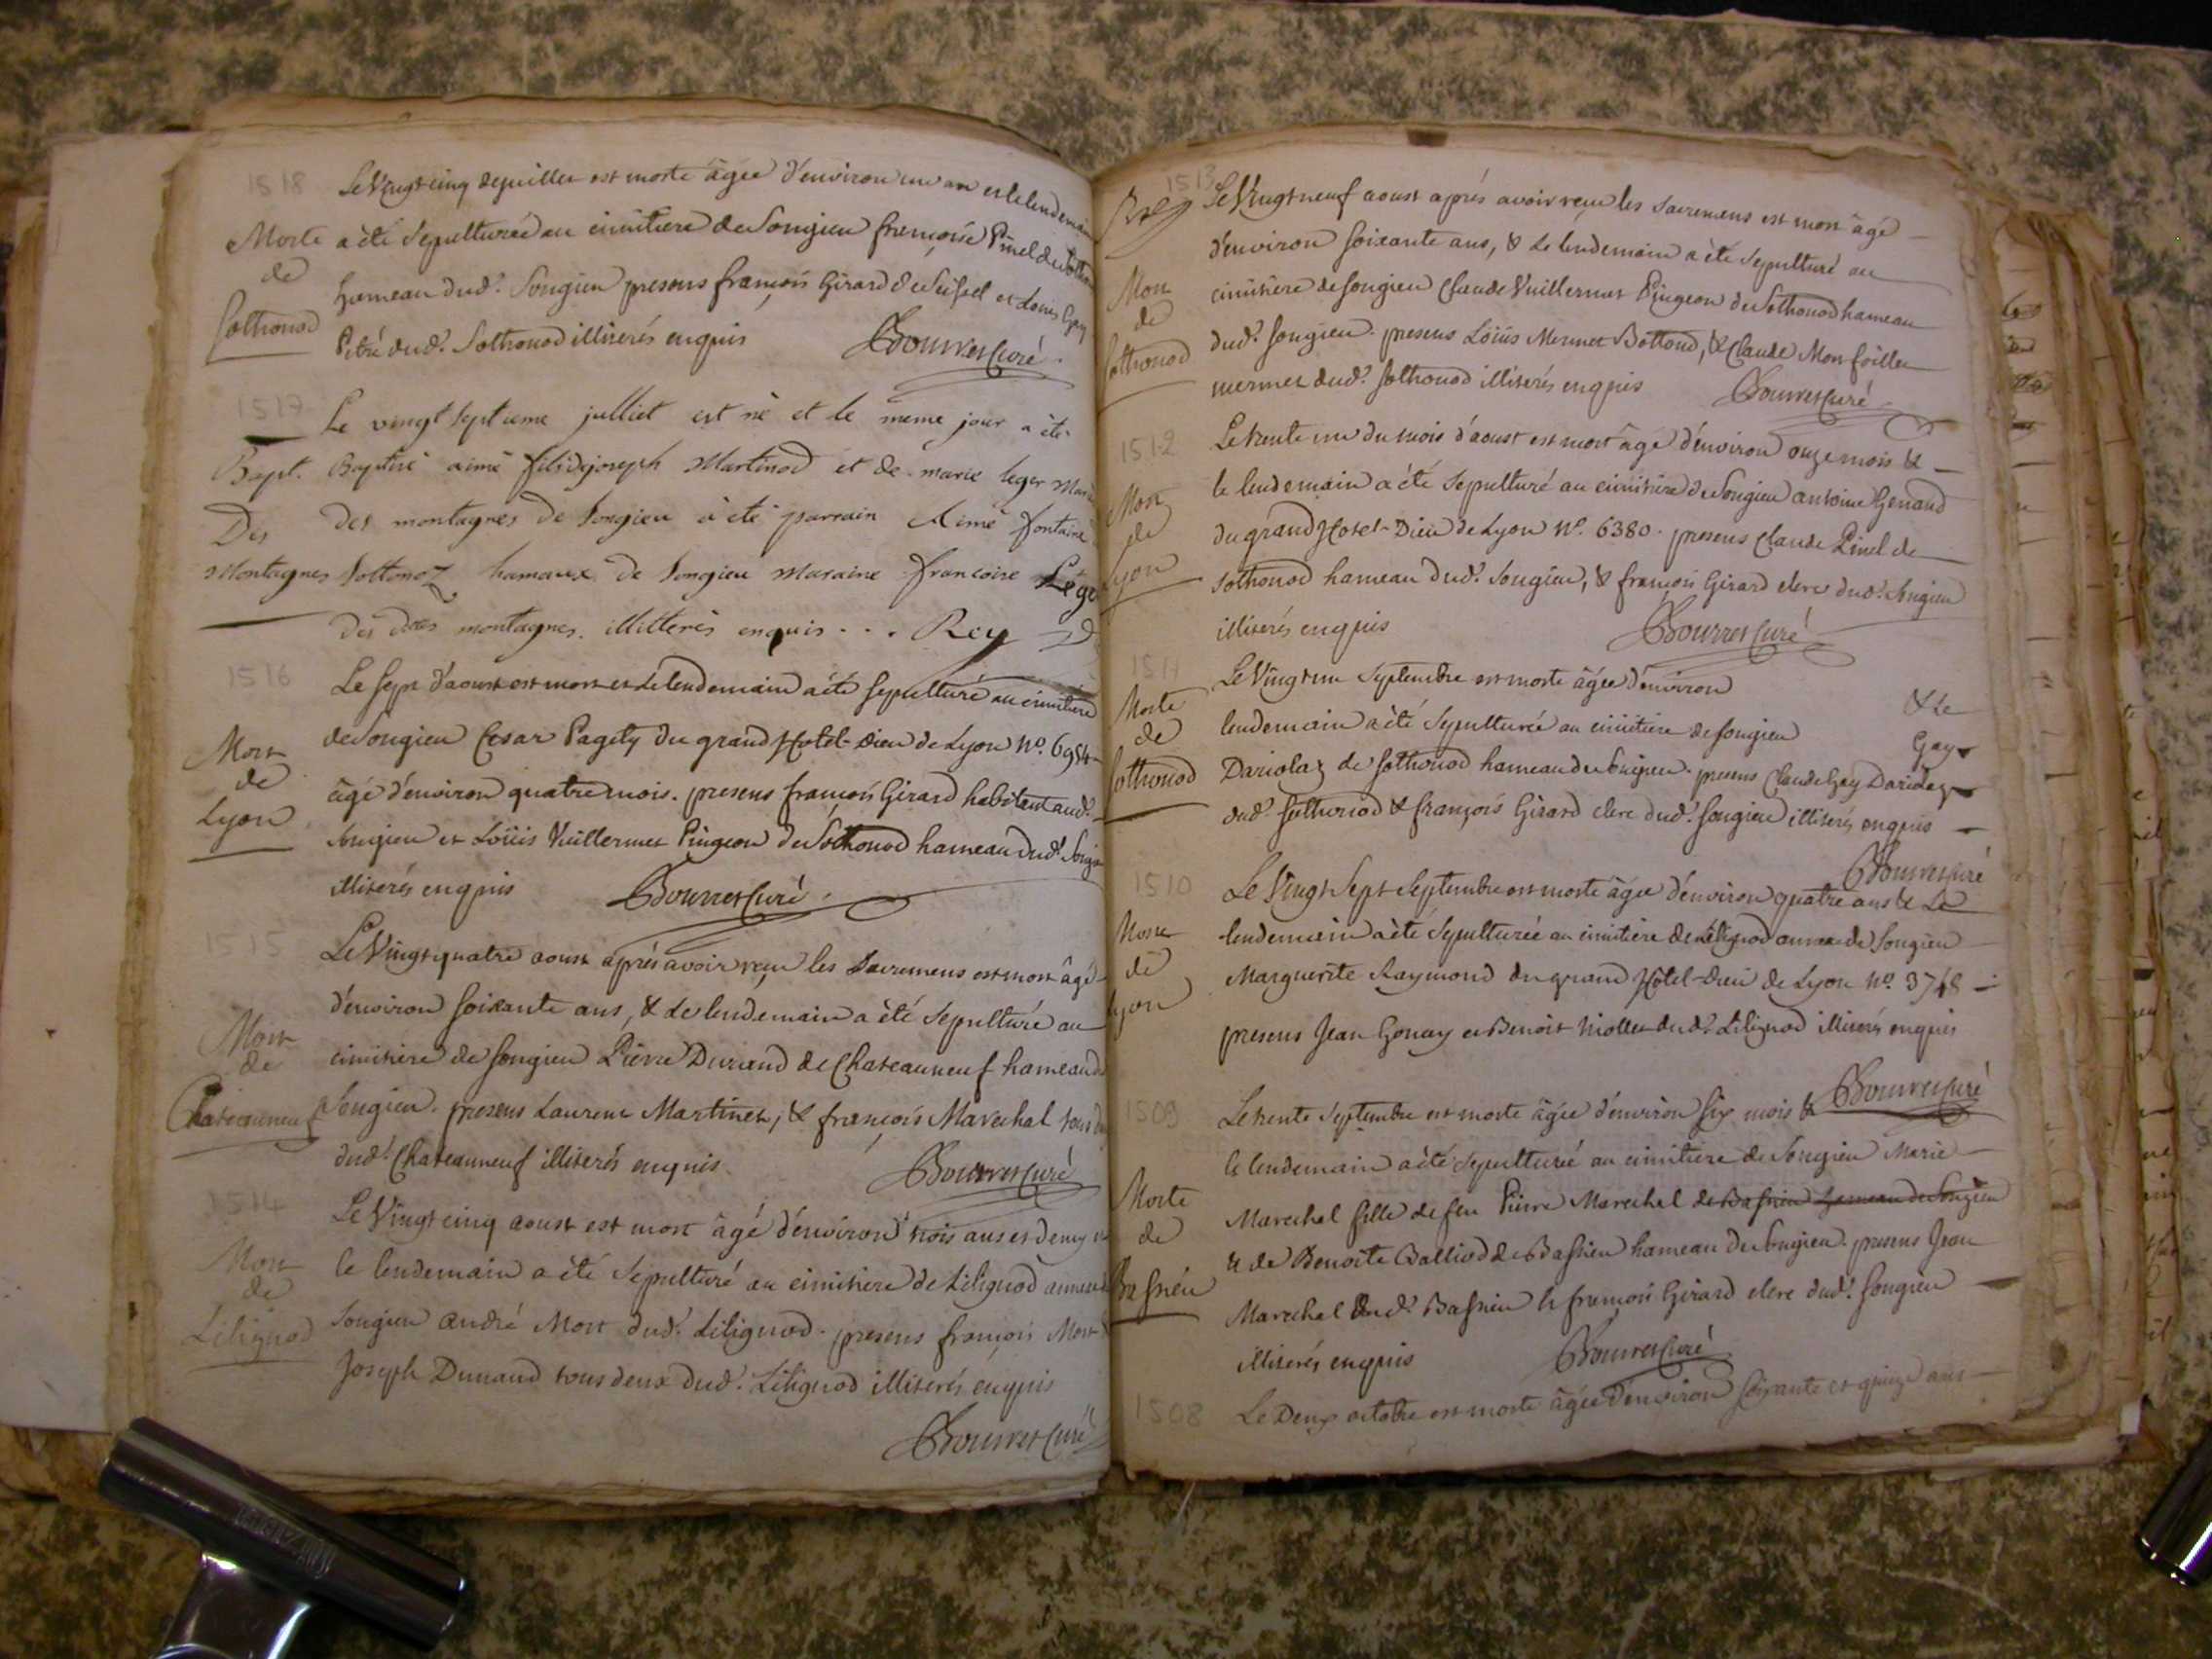 1518
Le Vingt cinq de juillet est morte âgée d'environ un an et le lendemain
Morte a été sepulturée au cimitiere de Songieu françoise Pinel de Sothonod
de
hameau dud.t Songieu presens françois Girard de Seissel et Louis Gay
Sothonod
Pitré dud.t Sothonod illiterés enquis Bourret Curé
1517
Le vingt septieme julliet est né et le meme jour a été
Bapt. Baptisé aimé fils de joseph Martinod et de marie leger
Des des montagnes de Songieu a été parrain Aimé fontaine
Montagnes Sottonoz hamaux de Songieu maraine francoise Léger
des dtes montagnes. illitterés enquis . . . Rey
1516
Le sept d'aoust est mort et le lendemain a été sepulturé au cimitiere
Mort de Songieu Cesar Pagety du grand Hotel-Dieu de Lyon N.o 6954
de
âgé d'environ quatre mois. presens françois Girard habitent aud.t
Lyon
Songieu et Loüis Vuillermet Pingeon de Sothonod hameau dud.t Songieu
illiterés enquis Bourret Curé
1515
Le Vingt quatre aoust aprés avoir reçu les Sacremens est mort âgé
d'environ soixante ans, & le lendemain a été sepulturé au
Mort
de
cimitiere de Songieu Pierre Durand de Chateauneuf hameau de
Chateauneuf Songieu. presens Laurent Martinet, & françois Marechal tous deux
dud.t Chateauneuf illiterés enquis Bourret Curé
1514
Le Vingt cinq aoust est mort âgé d'environ trois ans et demy et
Mort
de
le lendemain a été sepulturé au cimitiere de Lilignod annexe de
Lilignod
Songieu andré Mort dud.t Lilignod. presens françois Mort
Joseph Dunand tous deux dud.t Lilignod illiterés enquis
Bourret Curé
1513
Le Vingt neuf aoust aprés avoir reçu les Sacremens est mort âgé
d'environ soixante ans, & le lendemain a été sepulturé au
Mort
de
cimitiere de Songieu Claude Vuillermet Pingeon de Sothonod hameau
Sothonod
dud.t Songieu. presens Loüis Mermet Bottond, & Claude Monfoiller
mermet dud.t Sothonod illiterés enquis Bourret Curé
1512
Le trente un du mois d'aoust est mort âgé d'environ onze mois &
Mort
le lendemain a été sepulturé au cimitiere de Songieu antoine Genand
de
du grand Hotel-Dieu de Lyon N.o 6380. presens Claude Pinel de
Lyon
Sothonod hameau dud.t Songieu, & françois Girard clerc dud.t Songieu
illiterés enquis Bourret Curé
1511
Le Vingt un Septembre est morte âgée d'environ & le
Morte
de
lendemain a été sepulturée au cimitiere de Songieu Gay
Sothonod
Dariolaz de Sothonod hameau de Songieu. presens Claude Gay Dariolaz
dud.t Sothonod & françois Girard clerc dud.t Songieu illiterés enquis
Bourret Curé
1510
Le Vingt Sept Septembre est morte âgée d'environ quatre ans & Le
Morte
de
lendemain a été sepulturée au cimitiere de Lilignod annexe de Songieu
Lyon
Marguerite Raymond du grand Hôtel-Dieu de Lyon N.o 3748
presens Jean Gonay et Benoit Miollet dud.t Lilignod illiterés enquis
Bourret Curé
1509
Le trente Septembre est morte âgée d'environ six mois &
le lendemain a été sepulturée au cimitiere de Songieu Marie
Morte
de
Marechal fille de feu Pierre Marechal de Bassieu hameau de Songieu
Bassieu
& de Benoite Balliod de Bassieu hameau de Songieu. presens Jean
Marechal dud.t Bassieu & françois Girard clerc dud.t Songieu
illiterés enquis Bourret Curé
1508
Le Deux octobre est morte âgée d'environ soixante et quinze ans